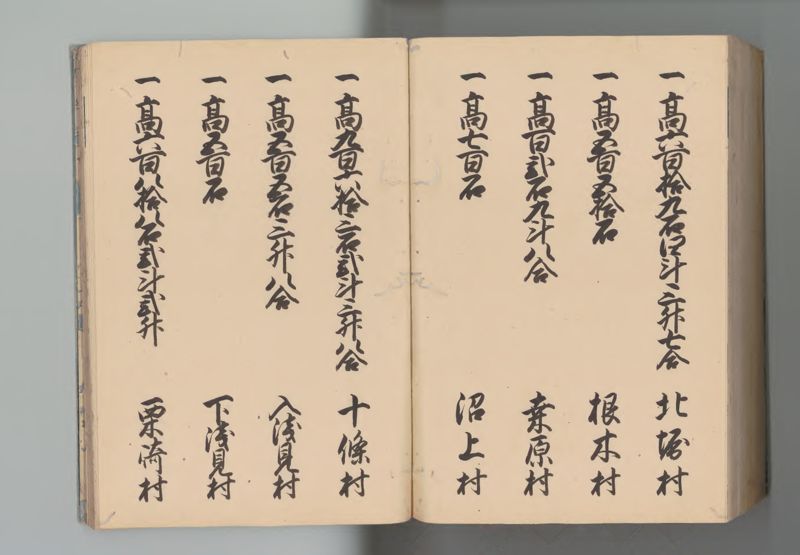 一高六百拾九石四斗三升七合 北堀村
一高五百五拾石 根木村
一高百弐石九斗八合 栗原村
一高七百石 沼上村
一高九百六拾三石弐斗三升八合 十條村
一高五百五石三升八合 入浅見村
一高五百石 下浅見村
一高六百八拾八石弐斗弐升 栗崎村